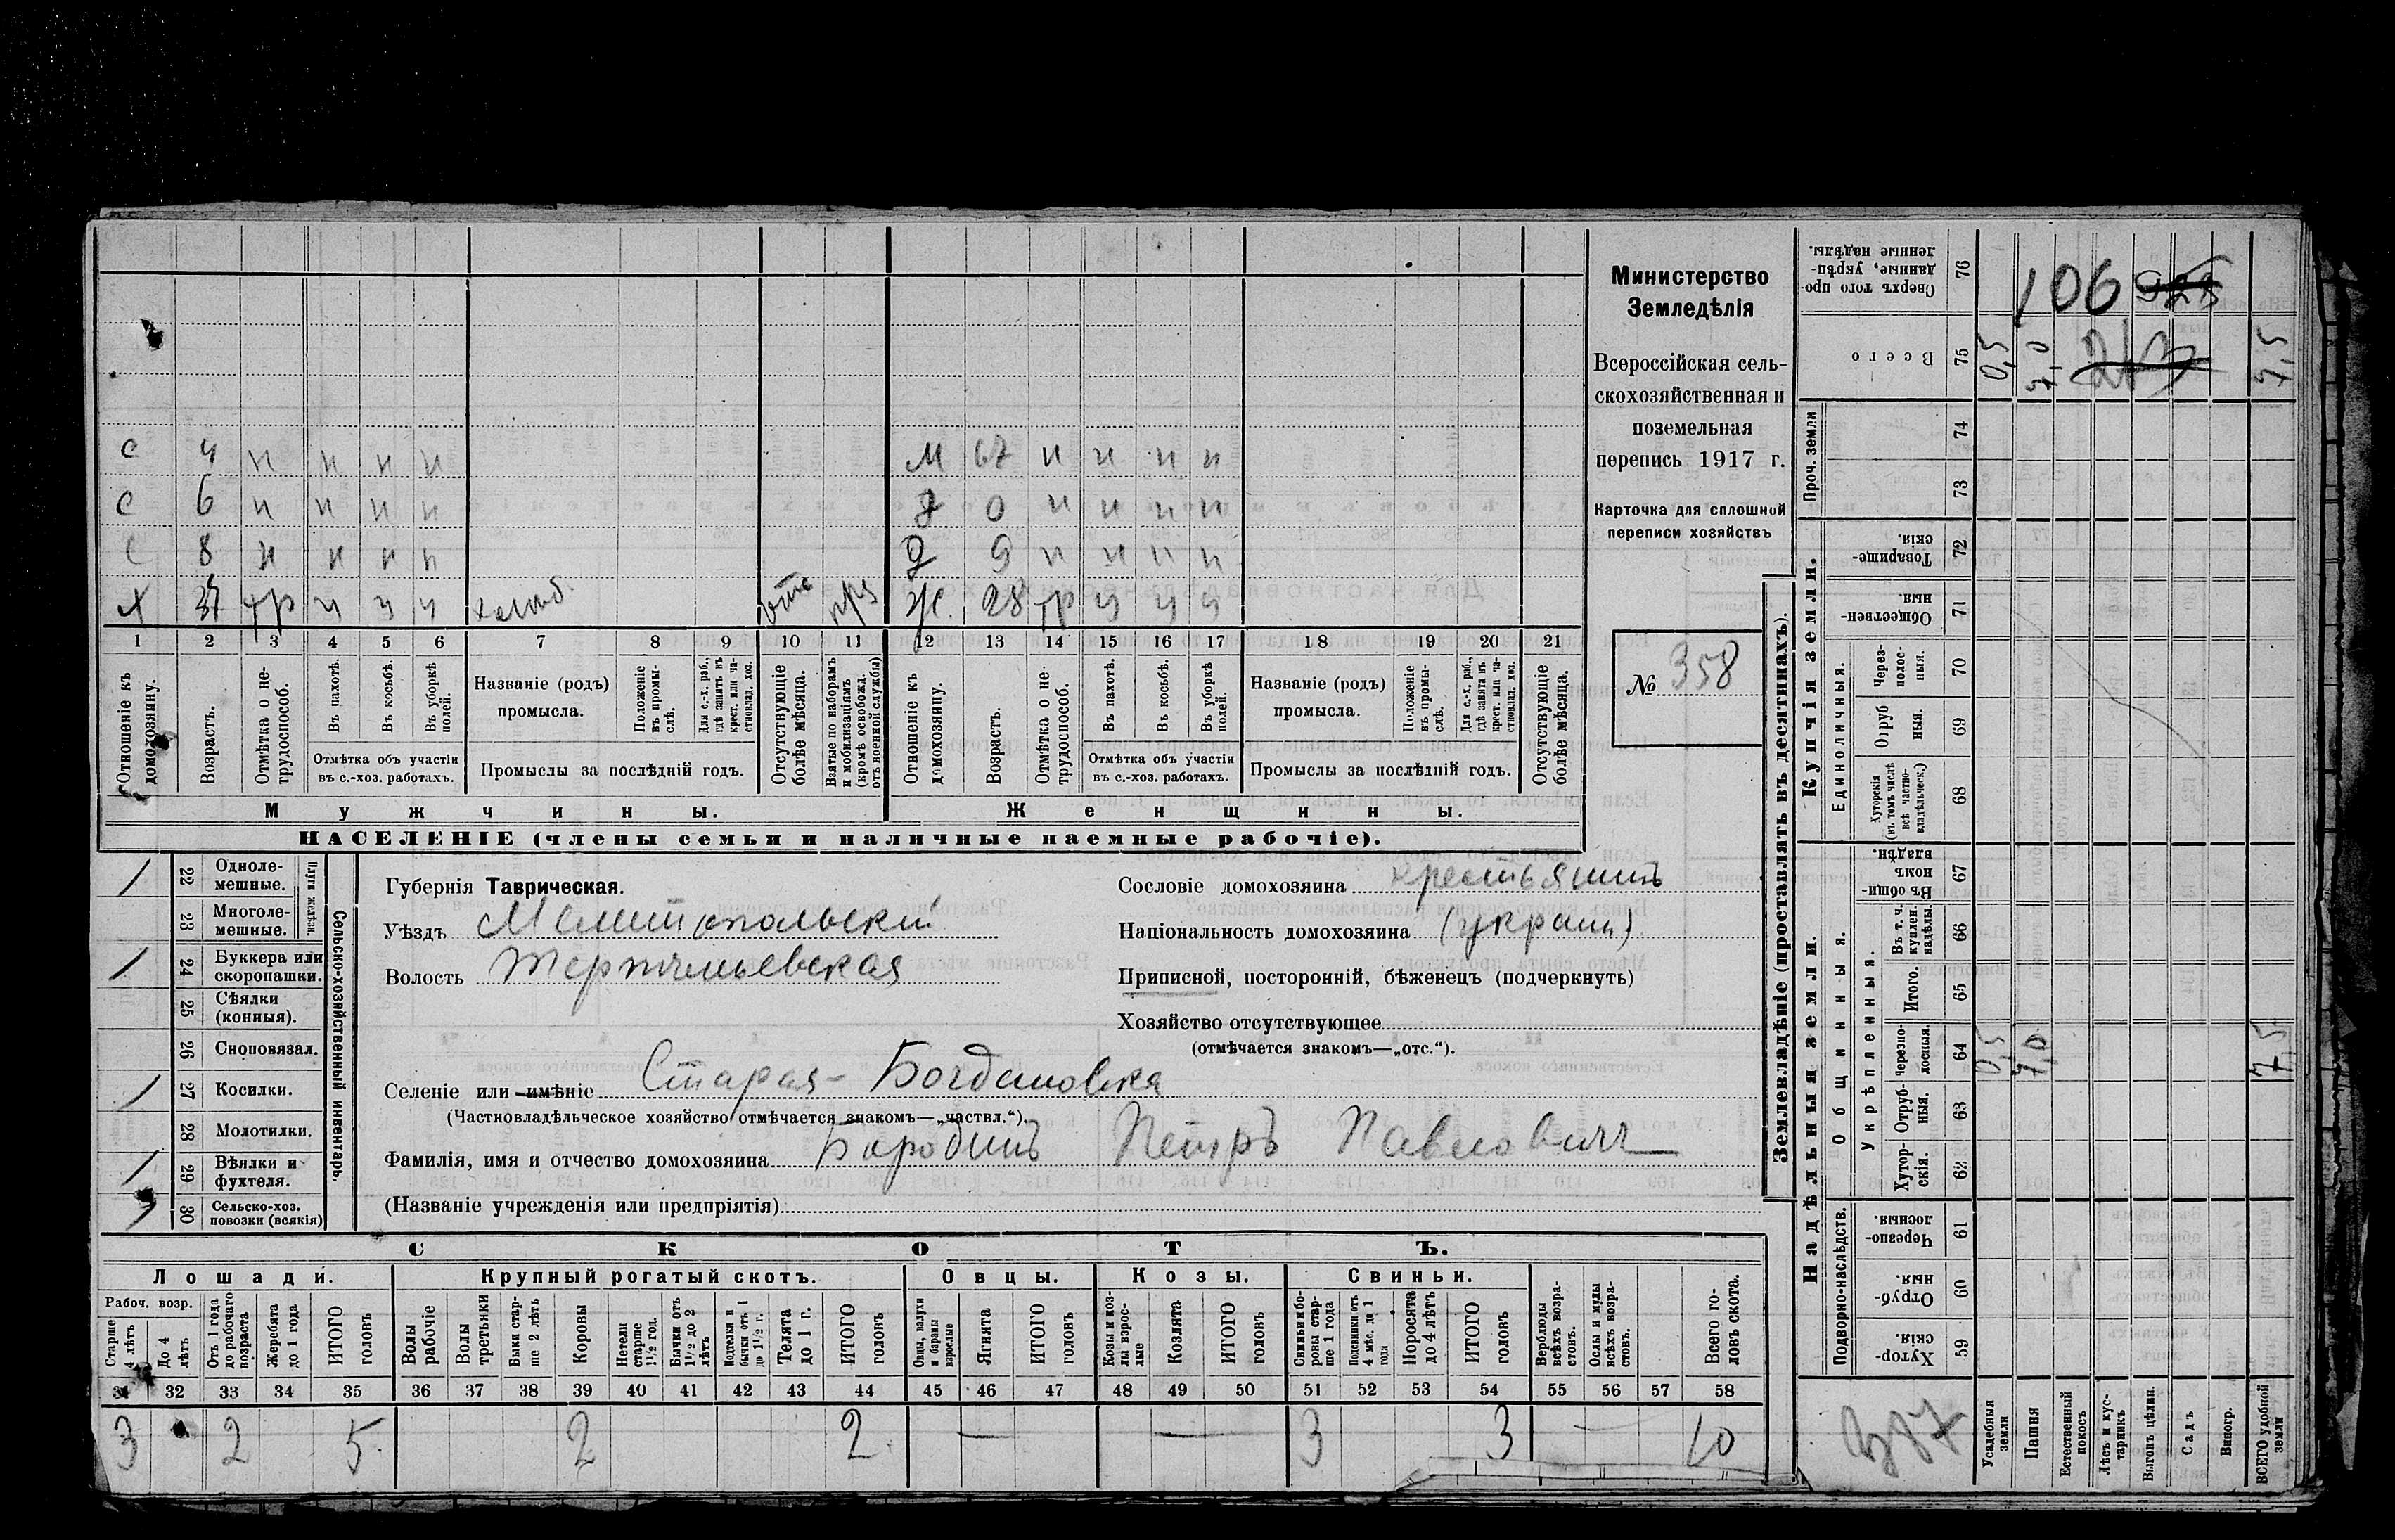 С 4 н н н н М 67 н н н н
С 6 н н н н д 0 н н н н
С 8 н н н н д 9 н н н н
Х 37 тр ч ч ч Ж. 28 тр ч ч ч
1 2 3 4 5 6 7 8 9 10 11 12 13 14 15 16 17 18 19 20 21
Отношеніе къ домохозяину.
Возрастъ.
Отмѣтка о не-трудоспособ.
Въ пахотѣ.
Въ косьбѣ.
Въ уборкѣ полей.
Отмѣтка объ участіи
въ с.-хоз. работахъ.
Названіе (родъ)
промысла.
Положеніе въ промы-слѣ.
Для с.-х. раб., гдѣ занятъ въ крест. или ча-стновлад. хоз.
Промыслы за послѣдній годъ.
Отсутствующіе болѣе мѣсяца.
Взятые по наборамъ и мобилизаціямъ (кромѣ освобожд. отъ военной службы)
Отношеніе къ домохозяину.
Возрастъ.
Отмѣтка о не трудоспособ.
Въ пахотѣ.
Въ косьбѣ.
Въ уборкѣ полей.
Отмѣтка объ участіи
въ с.-хоз. работахъ.
Названіе (родъ)
промысла.
Положеніе въ промы-слѣ.
Для с.-х. раб., гдѣ занята въ крест. или ча-стновлад. хоз.
Промыслы за послѣдній годъ.
Отсутствующіе болѣе мѣсяца.
Мужчины. Женщины.
НАСЕЛЕНІЕ (члены семьи и наличные наемные рабочіе).
Министерство
Земледѣлія
Всероссійская сель-
скохозяйственная и
поземельная
перепись 1917 г.
Карточка для сплошной
переписи хозяйствъ
№ 358
/ 22 Одноле-
мешные.
23 Многоле-
мешные.
Плуги желѣзн.
/ 24 Буккера или
скоропашки.
25 Сѣялки
(конныя).
26 Сноповязал.
/ 27 Косилки.
28 Молотилки.
/ 29 Вѣялки и
фухтеля.
30 Сельско-хоз.
повозки (всякія)
Сельско-хозяйственный инвентарь.
Губернія Таврическая.
Уѣздъ Мелитопольскій
Волость
Сословіе домохозяина крестьянинъ
Національность домохозяина (украин)
Приписной, посторонній, бѣженецъ (подчеркнуть)
Хозяйство отсутствующее
(отмѣчается знакомъ—„отс.“).
Селеніе или имѣніе Старая-Богдановка
(Частновладѣльческое хозяйство отмѣчается знакомъ—„частвл.“).
Фамилія, имя и отчество домохозяина Бородинъ Петръ Павловичъ
(Названіе учрежденія или предпріятія)
СКОТЪ.
Лошади. Крупный рогатый скотъ. Овцы. Козы. Свиньи.
Рабоч. возр.
Старше 4 лѣтъ
До 4 лѣтъ
Отъ 1 года до рабочаго возраста
Жеребята до 1 года
ИТОГО головъ
Волы рабочіе
Волы третьяки
Быки стар-ше 2 лѣтъ
Коровы
Нетели старше 1½ год.
Бычки отъ 1½ до 2 лѣтъ
Подтелки и бычки отъ 1 до 1½ г.
Телята до 1 г.
ИТОГО головъ
Овцы, валухи и бараны взрослые
Ягнята
ИТОГО головъ
Козы и коз-лы взрос-лые
Козлята
ИТОГО головъ
Свиньи и бо-ровы стар-ше 1 года
Подсвинки отъ 4 мѣс. до 1 года
Поросята до 4 лѣтъ
ИТОГО головъ
Верблюды всѣхъ возра-стовъ.
Ослы и мулы всѣхъ возра-стовъ.
Всего го-ловъ скота.
31 32 33 34 35 36 37 38 39 40 41 42 43 44 45 46 47 48 49 50 51 52 53 54 55 56 57 58
3 2 5 2 2 — — 3 3 — 10
Землевладѣніе (проставлять въ десятинахъ).
Сверхъ того про-
данные, укрѣп-
ленные надѣлы.
76 106
Всего 75 0,5 7,0 7,5
Купчія земли.
Проч. земли
74
73
Товарище-
скія.
72
Обществен-
ныя.
71
Единоличныя.
Через-
полос-
ныя.
70
Отруб
ныя.
69
Хуторскія
(въ томъ числѣ
всѣ частно-
владѣльческ.)
68
Надѣльныя земли.
Общинныя.
Въ общи-
номъ
владѣн.
67
Укрѣпленныя.
Въ т. ч.
куплен.
надѣлы.
66
Итого.
65
Черезпо-
лосныя.
64 0,5 7,0 7,5
Отруб-
ныя.
63
Хутор-
скія.
62
Подворно-наслѣдств.
Черезпо-
лосныя.
61
Отруб-
ныя.
60
Хутор-
скія.
59
Усадебныя земли
Пашня
Естественный покосъ
Лѣсъ и кус-тарникъ
Выгонъ цѣлин.
Садъ
Виногр.
ВСЕГО удобной земли